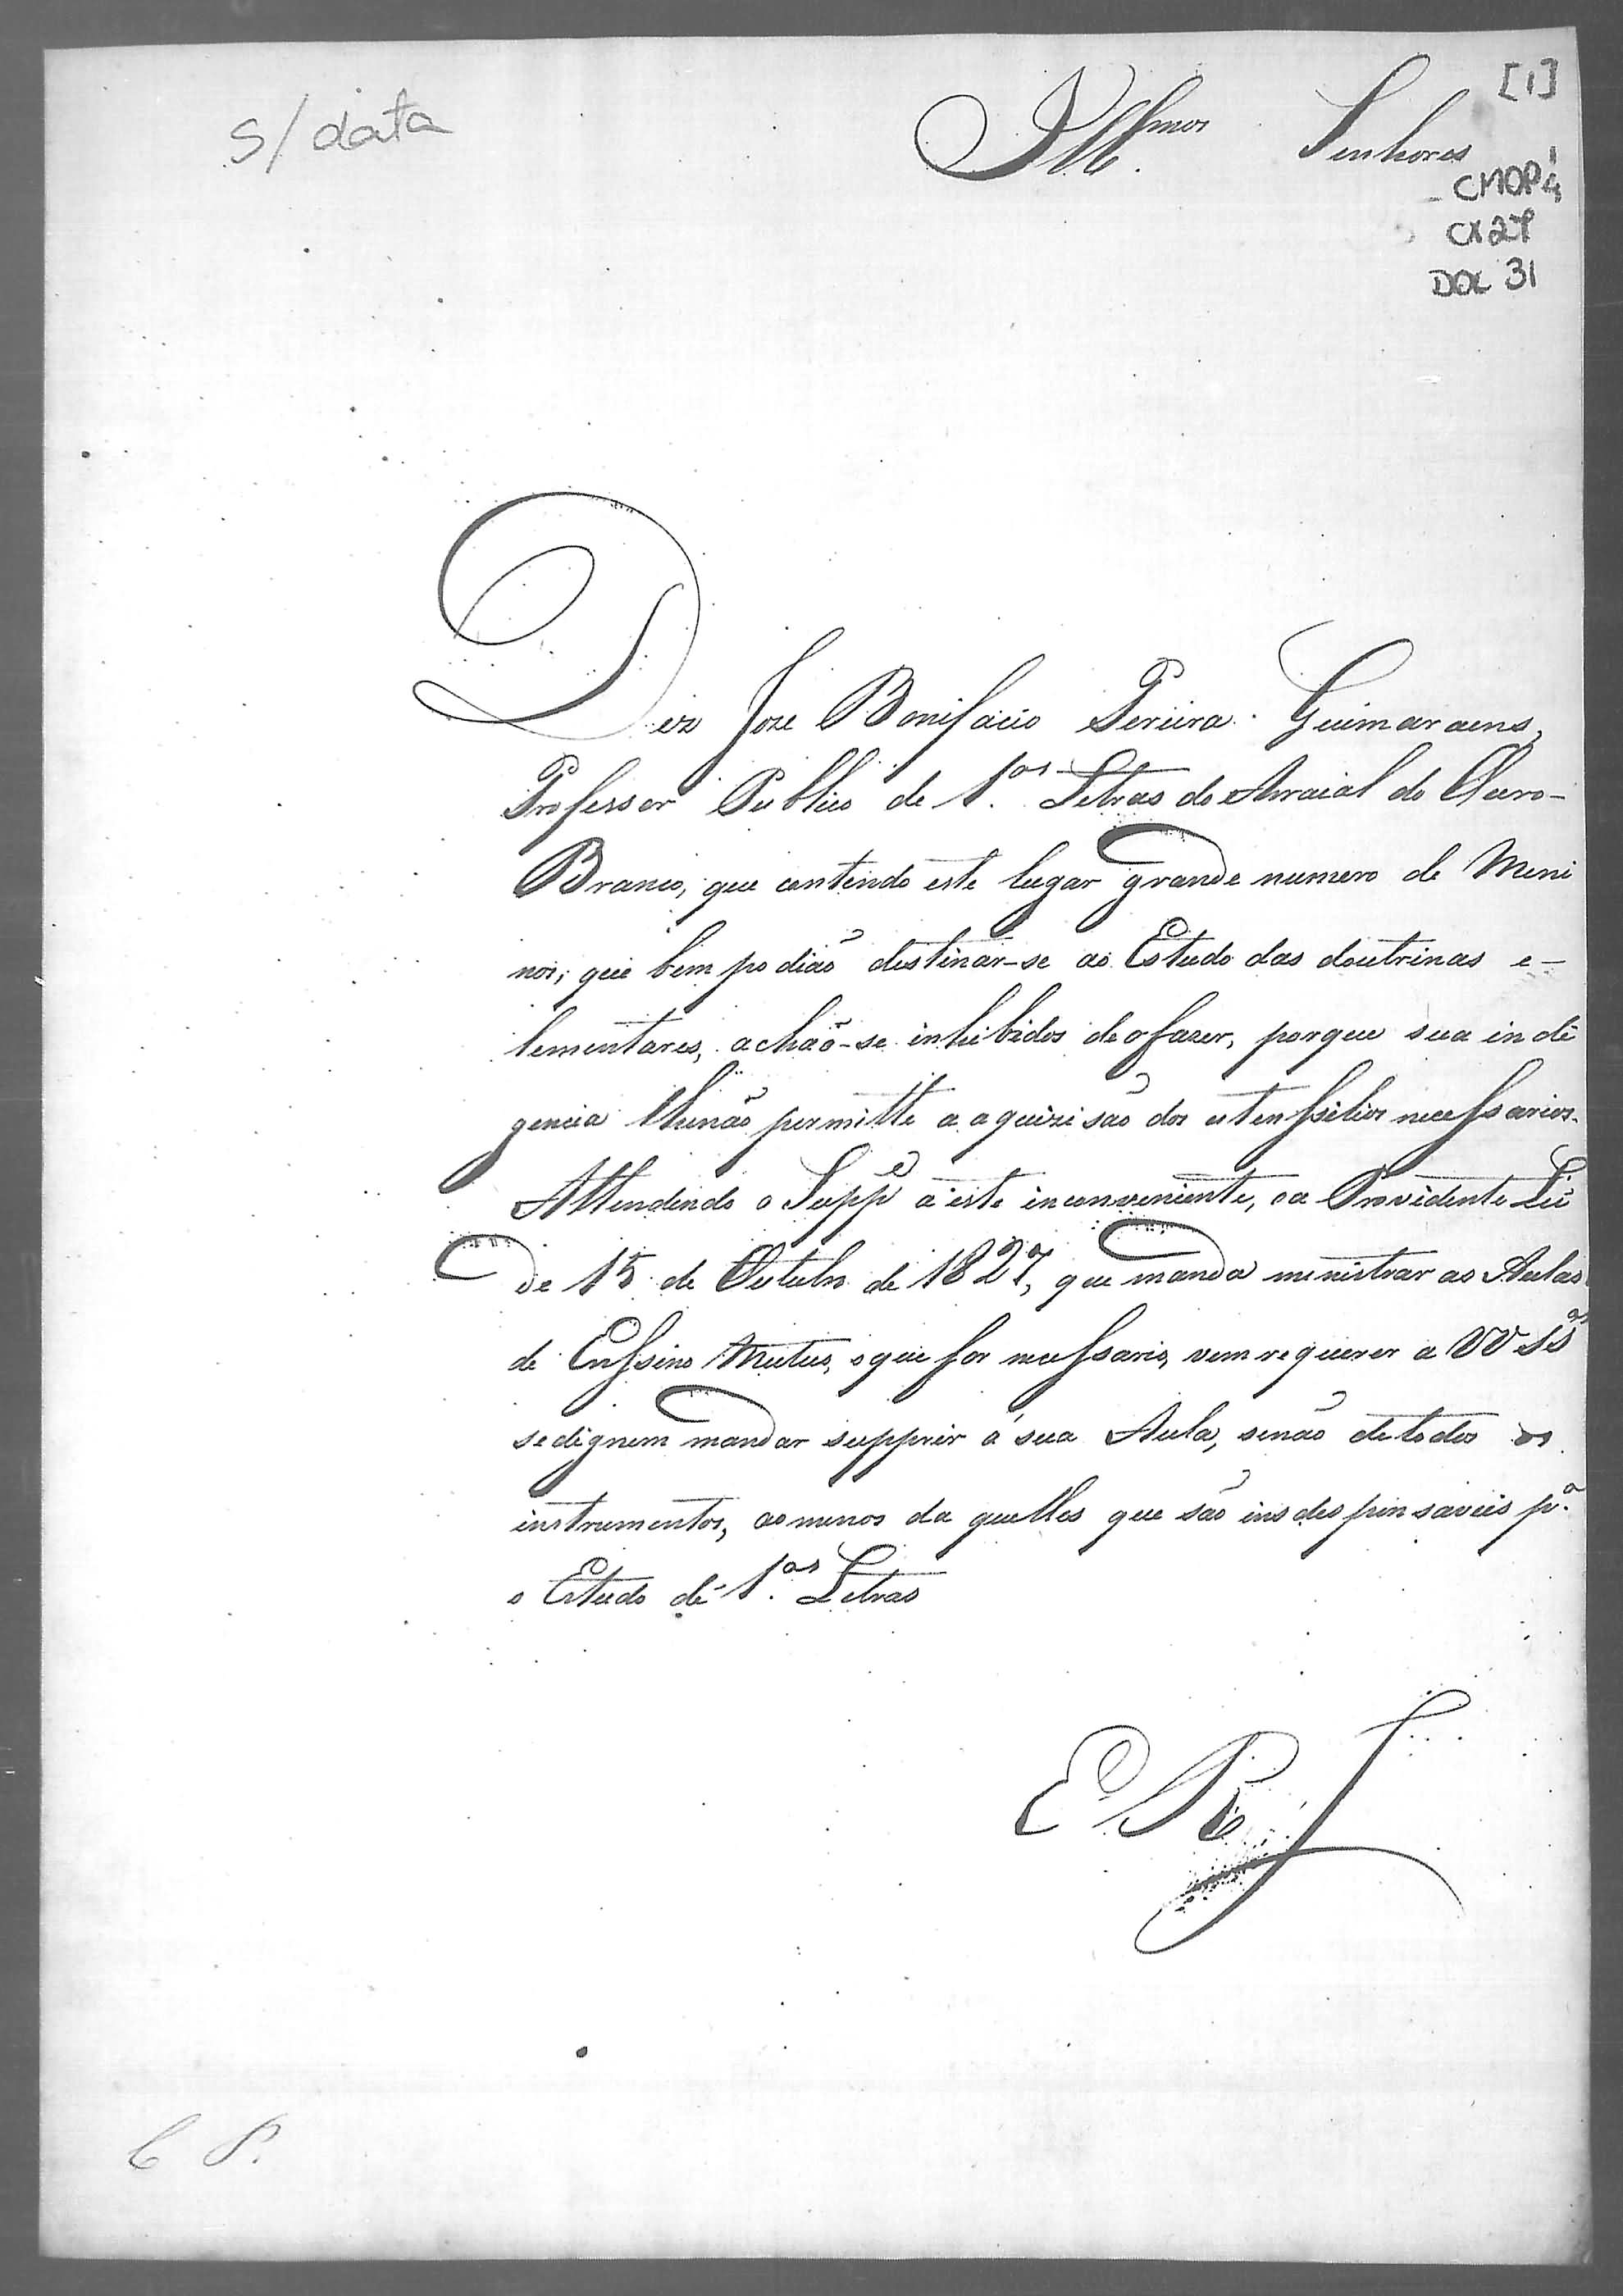 [1]
S/ data
Illmos. Senhores
CMOP
CX 27
DOC 31
Diz Joze Bonifacio Pereira Guimaraens,
Professor Publico de 1.as Letras do Arraial do Ouro-
Branco, que contendo este lugar grande numero de Meni
nos, que bem podião destinar-se ao Estudo das doutrinas e-
lementares, achão-se inhibidos de o fazer, porque sua indi
gencia lhe não permitte a aquizisão dos utenssilios necessarios.
Attendendo o Suppe a este inconveniente, e a Providente Lei
de 15 de Outubro de 1827, que manda ministrar as Aulas
de Enssino Mutuo, o que for necessario, vem requerer a VV SSas
se dignem mandar supprir á sua Aula, senão de todos os
instrumentos, ao menos da quelles que são insdespensaveis pa.
o Estudo de 1.as Letras
E R
C P.